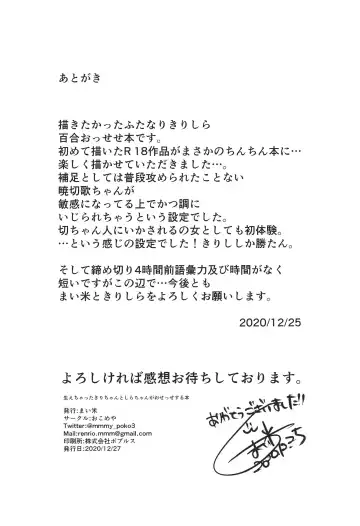 あとがき
描きたかったふたなりきりしら
百合おっせせ本です。
初めて描いたR18作品がまさかのちんちん本に…
楽しく描かせていただきました…。
補足としては普段攻められたことない
暁切歌ちゃんが
敏感になってる上でかつ調に
いじられちゃうという設定でした。
切ちゃん人にいかされるの女としても初体験。
…という感じの設定でした！きりししか勝たん。
そして締め切り4時間前語彙力及び時間がなく
短いですがこの辺で…今後とも
まい米ときりしらをよろしくお願いします。
2020/12/25
よろしければ感想お待ちしております。
生えちゃったきりちゃんとしらちゃんがおせっせする本
発行:まい米
サークル:おこめや
Twitter:@mmmy_poko3
Mail:renrio.mmm@gmail.com
印刷所:株式会社ポプルス
発行日:2020/12/27
ありがとうございました!!